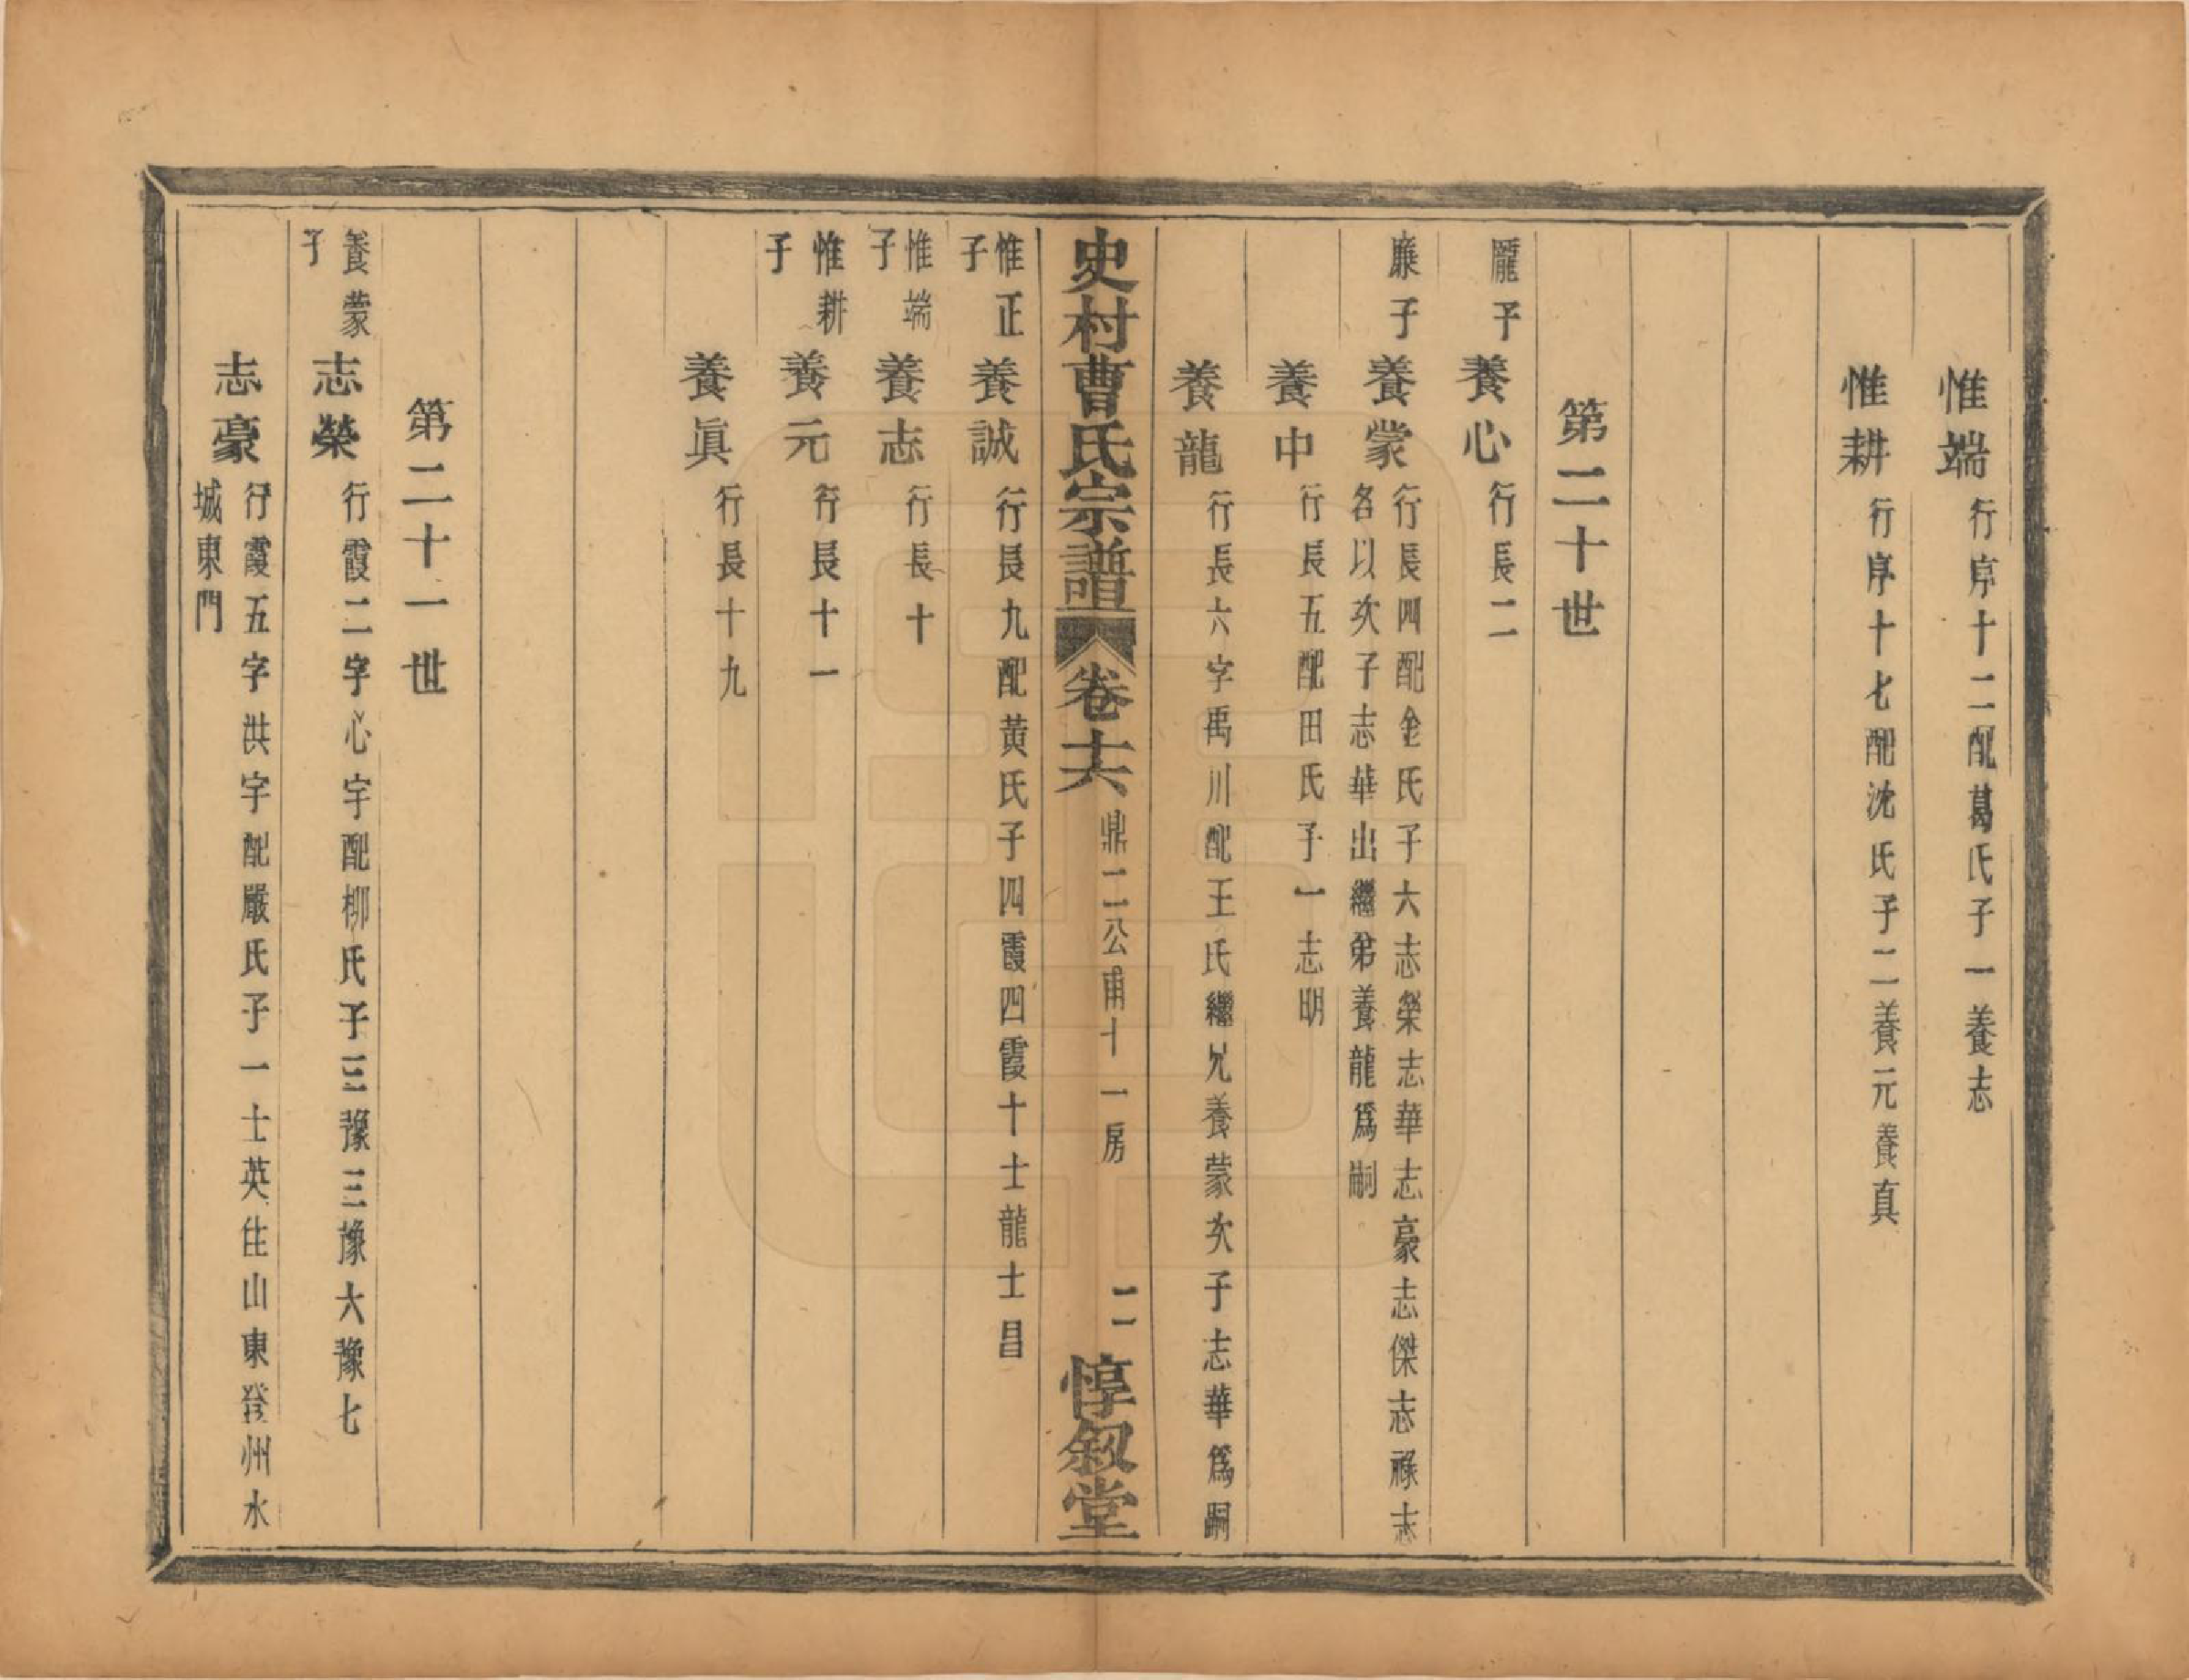 惟端 行序十二配葛氏子一養志
惟耕 行序十七配沈氏子二養元養真
第二十世
龎子 養心 行長二
廉子 養蒙 行長四配金氏子六志榮志華志豪志傑志祿志
各以次子志華出繼弟養龍爲嗣
養中 行長五配田氏子一志明
養龍 行長六字禹川配王氏繼兄養蒙次子志華爲嗣
史村曹氏宗譜 卷十六 鼎二公甫十一房 二 惇叙堂
惟正子 養誠 行長九配黃氏子四霞四霞十士龍士昌
惟端子 養志 行長十
惟耕子 養元 行長十一
養眞 行長十九
第二十一世
養蒙子 志榮 行霞二字心宇配柳氏子三豫三豫六豫七
志豪 行霞五字洪宇配嚴氏子一士英住山東登州水
城東門